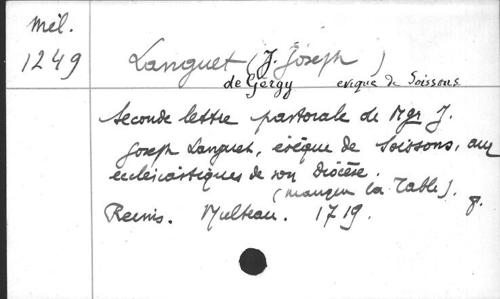 Mél.
1249
Languet (J. Joseph)
de Gergy evêque de Soissons
Seconde lettre pastorale de Mgr J.
Joseph Languet, évêque de Soissons, aux
ecclésiastiques de son diocèse.
(manque la Table).
Reims. Multeau. 1719. 8.